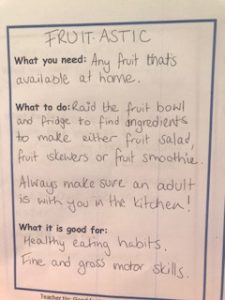 FRUIT-ASTIC
What you need: Any fruit that's
available at home.
What to do: Raid the fruit bowl
and fridge to find ingredients
to make either fruit salad,
fruit skewers or fruit smoothie.
Always make sure an adult
is with you in the kitchen!
What it is good for:
Healthy eating habits.
Fine and gross motor skills.